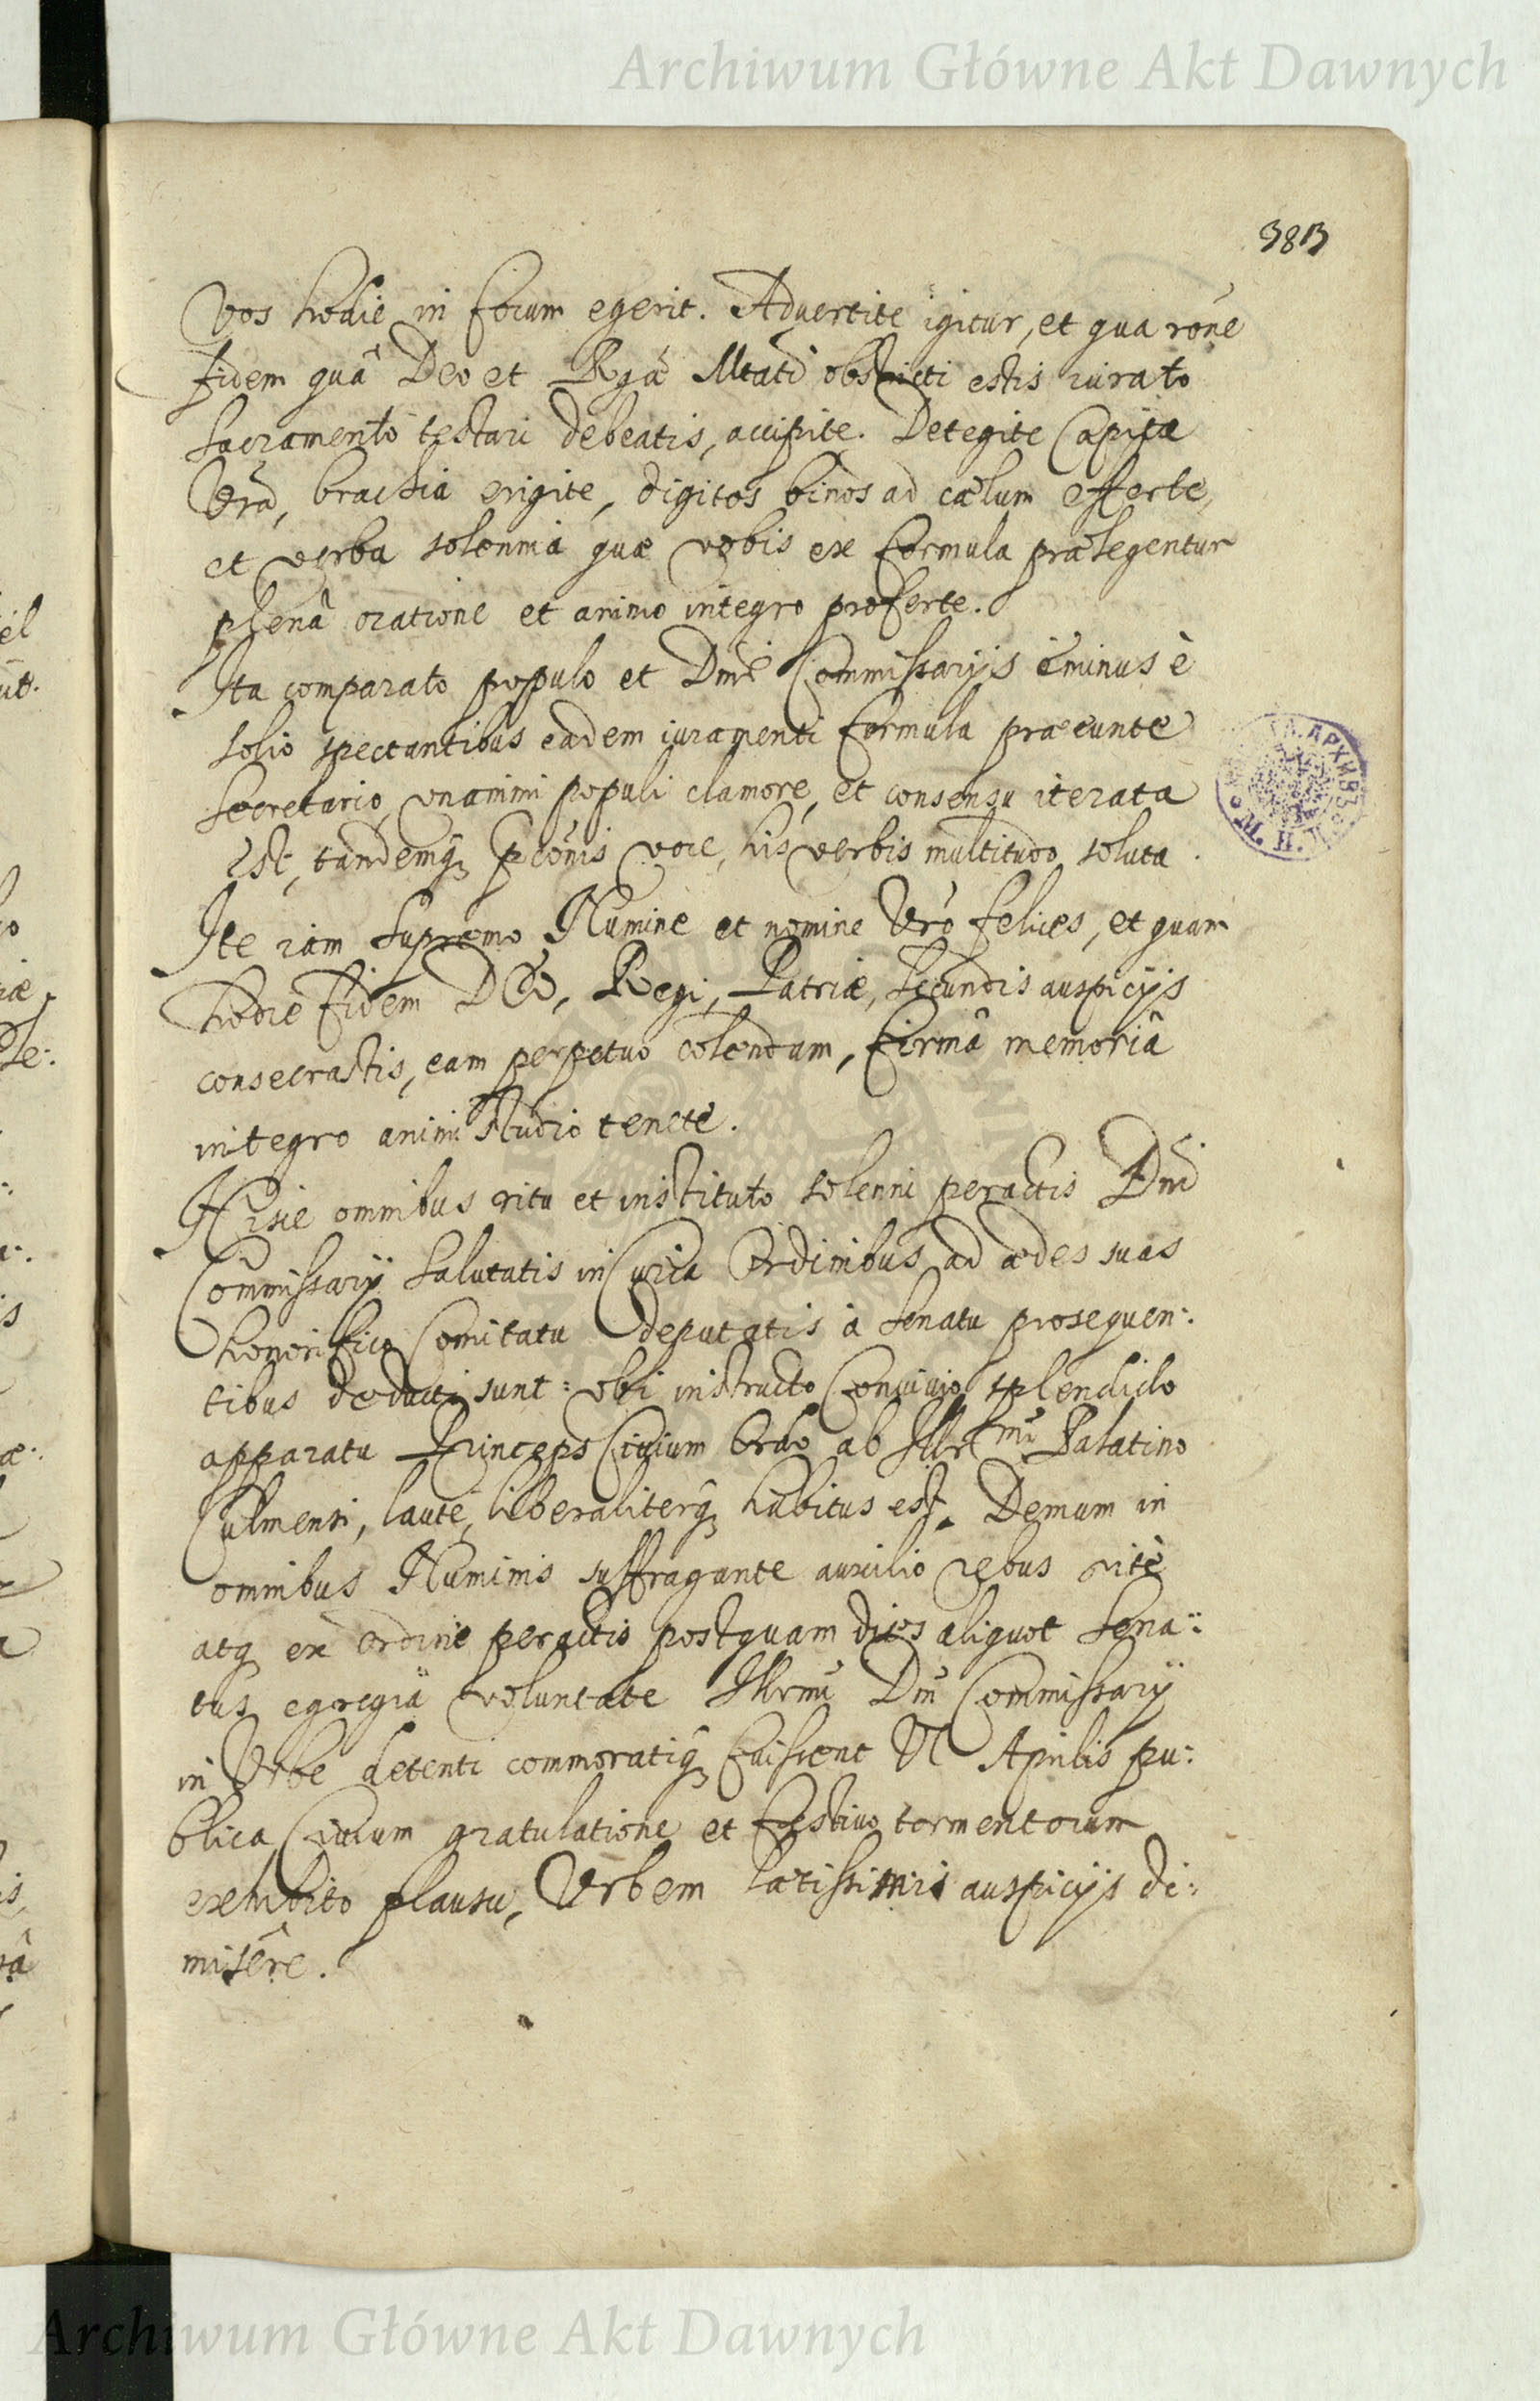 Archiwum Główne Akt Dawnych
383
Vos hodie in forum egerit. Advertite igitur, et qua rōne
fidem quâ Deo et Rgā Mtati obstricti estis iurato
Sacramento testari debeatis, accipite. Detegite Capita
Vrā, brachia erigite, digitos binos ad cælum efferte,
et verba solennia quæ vobis ex formula prælegentur
plenâ oratione et animo integro proferte.
Ita comparato populo et Dnis Commissarijs eminus è
solio spectantibus eadem iuramenti formula præeunte
Secretario, unanimi populi clamore, et consensu iterata
est, tandemq̧ voce, his verbis multitudo soluta.
Ite iam Supremo Numine et nomine Vrō felices, et quam
hodie fidem DEO, Regi, Patriæ, secundis auspicijs
consecrastis, eam perpetuo colendam, firmâ memoriâ
integro animi studio tenete.
Hisce omnibus ritu et instituto solenni peractis Dni
Commissarij Salutatis in Curia Ordinibus ad ædes suas
honorifico Comitatu deputatis à Senatu prosequen:
tibus deducti sunt: ubi instructo Convivio splendido
apparatu Princeps Civium Ordo ab Illr̄mo Palatino
Culmensi, lautè, liberaliterq̧ habitus est. Demum in
omnibus Numinis suffragante auxilio rebus ritè
atq̧ ex ordine peractis postquam dies aliquot Sena:
tus egregiâ voluntate Illrmi Dni Commissarij
in Urbe detenti commoratiq̧ fuissent VI Aprilis pu:
blica Civium gratulatione et festivo tormentorum
exhibito plausu, Urbem lætissimis auspicijs di:
misêre.
Archiwum Główne Akt Dawnych